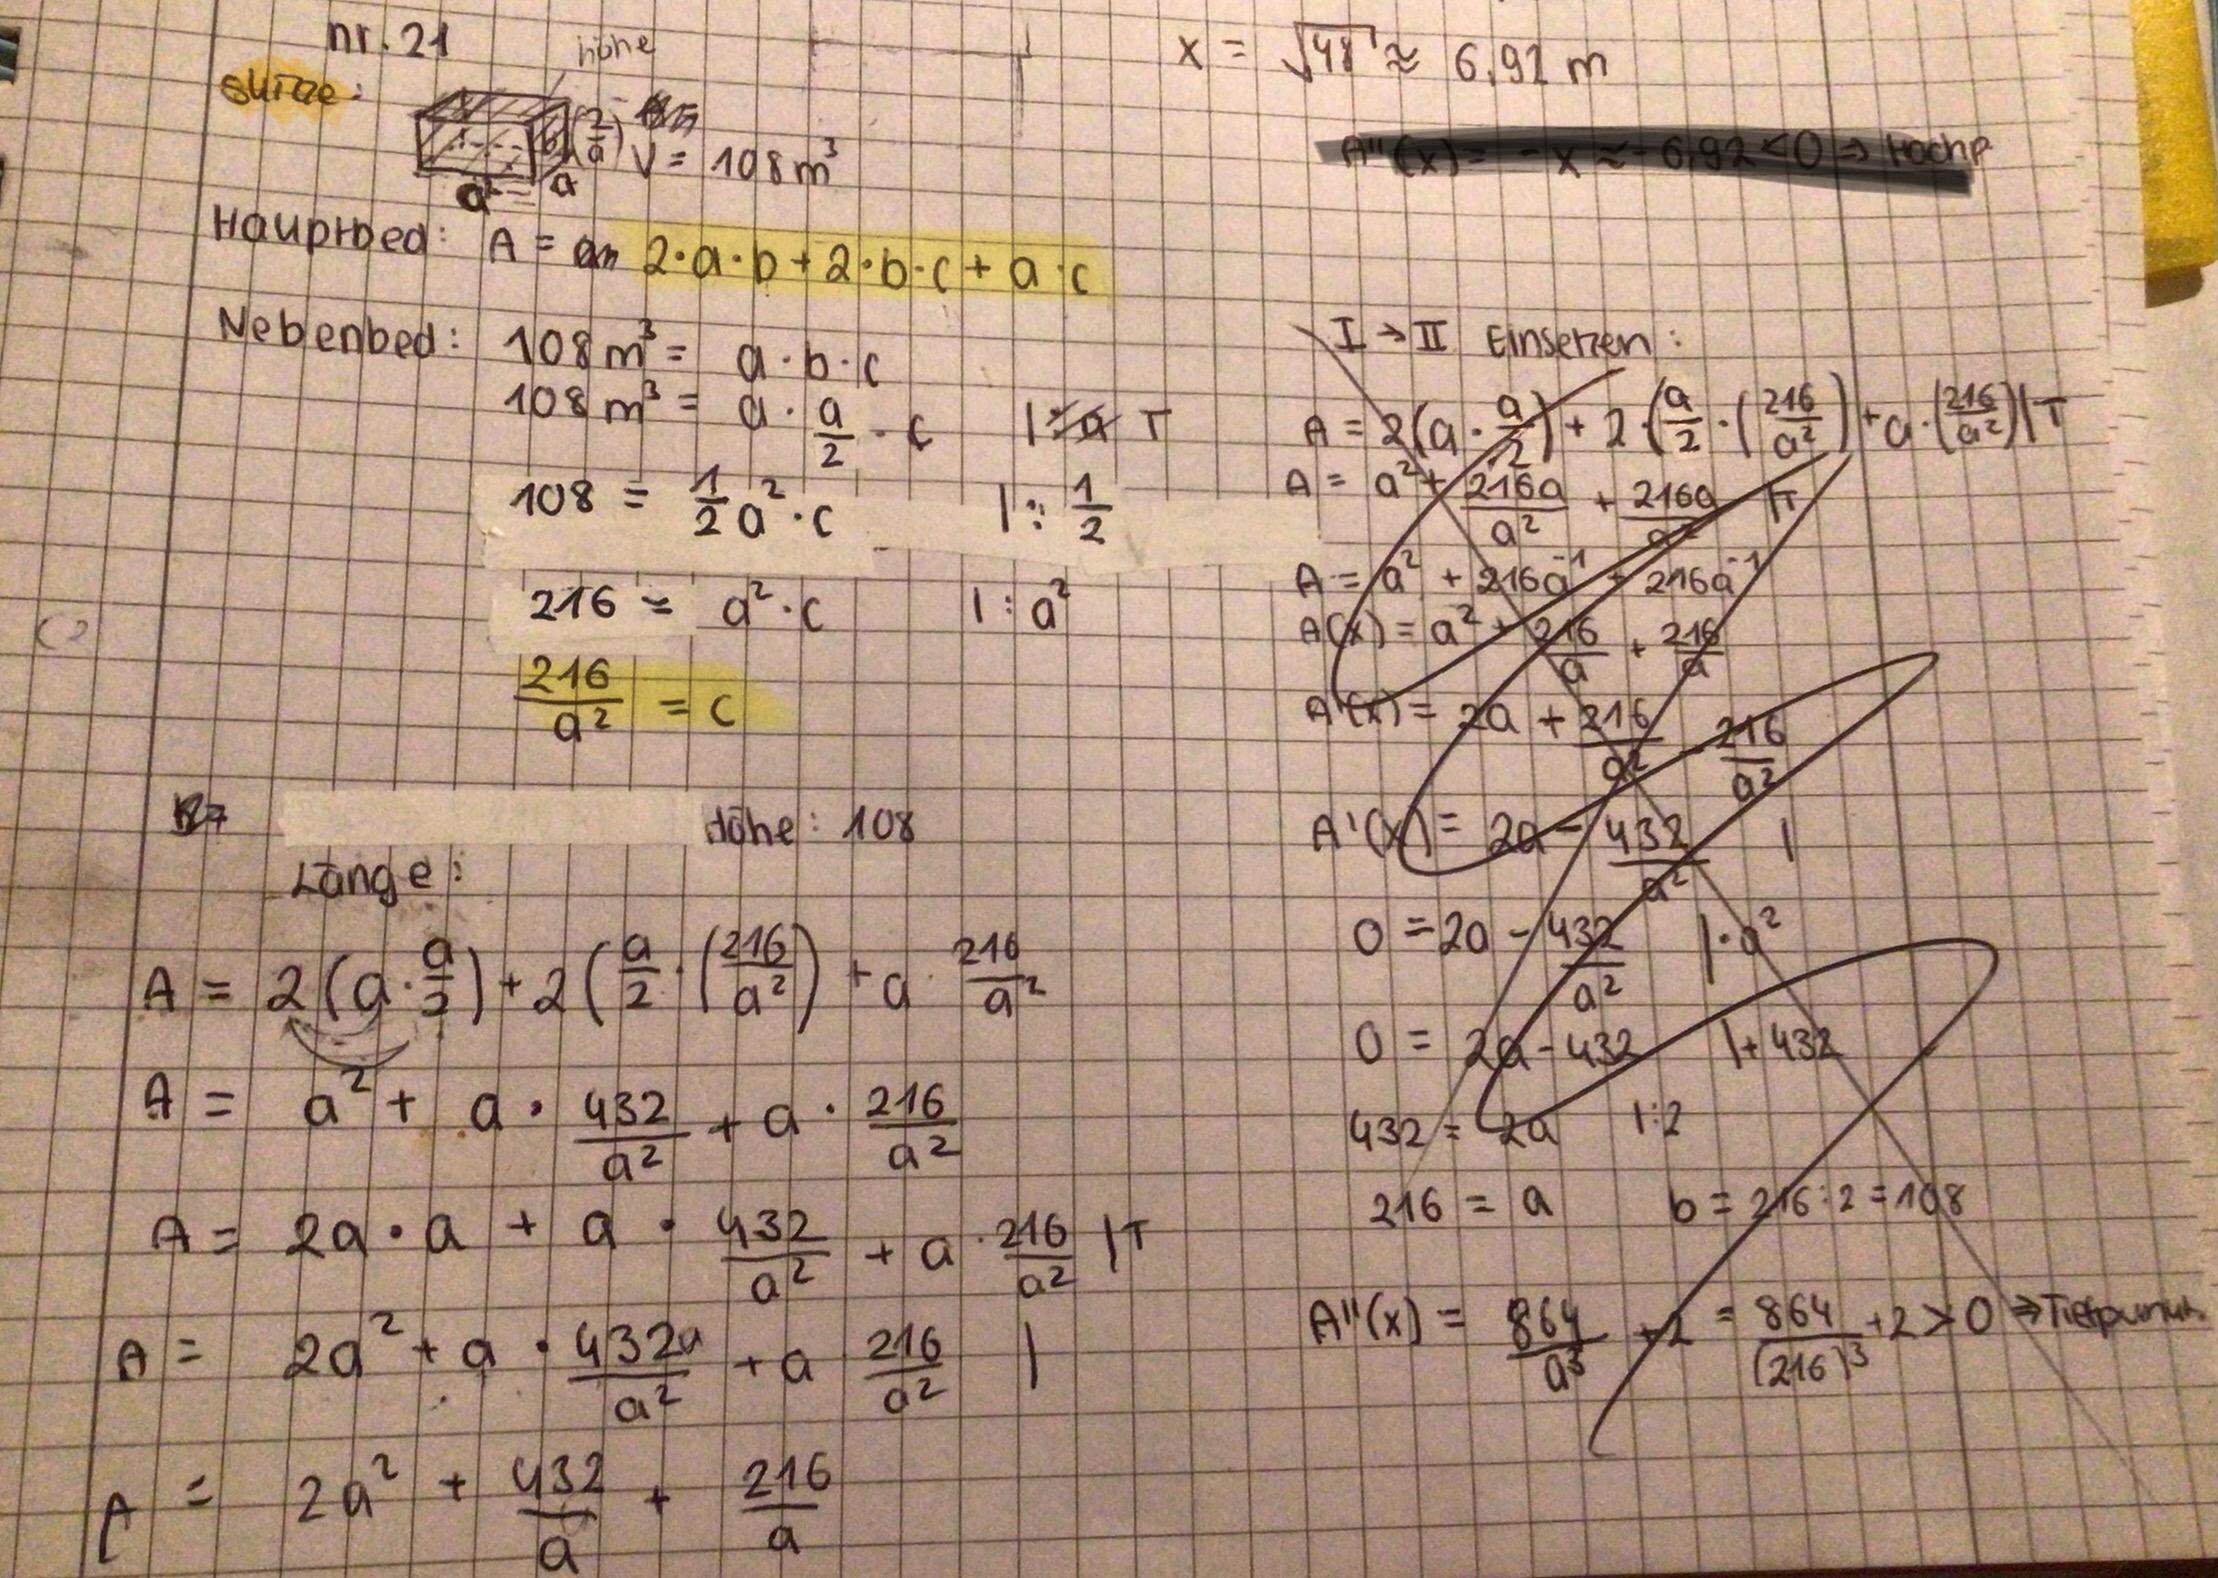 nr. 21
höhe
Skizze:
b (a/2)
V = 108 m³
a² = a
Hauptbed: A = 2·a·b + 2·b·c + a·c
Nebenbed: 108 m³ = a·b·c
108 m³ = a · a/2 · c | : a T
108 = 1/2 a² · c | : 1/2
216 = a² · c | : a²
216/a² = c
Höhe: 108
Länge:
A = 2(a · a/2) + 2(a/2 · (216/a²) + a · 216/a²
A = a² + a · 432/a² + a · 216/a²
A = 2a · a + a · 432/a² + a · 216/a² | T
A = 2a² + a · 432a/a² + a 216/a² |
A = 2a² + 432/a + 216/a
x = √48 ≈ 6,92 m
A''(x) = -x ≈ -6,92 < 0 ⇒ Hochp
I → II Einsetzen:
A = 2(a · a/2) + 2·(a/2 · (216/a²) + a · (216/a²) | T
A = a² + 216a/a² + 216a/a² | T
A = a² + 216a⁻¹ + 216a⁻¹
A(x) = a² + 216/a + 216/a
A'(x) = 2a + 216/a² - 216/a²
A'(x) = 2a - 432/a² |
0 = 2a - 432/a² | · a²
0 = 2a - 432 | + 432
432 = 2a | : 2
216 = a b = 216 : 2 = 108
A''(x) = 864/a³ + 2 = 864/(216)³ + 2 > 0 ⇒ Tiefpunkt